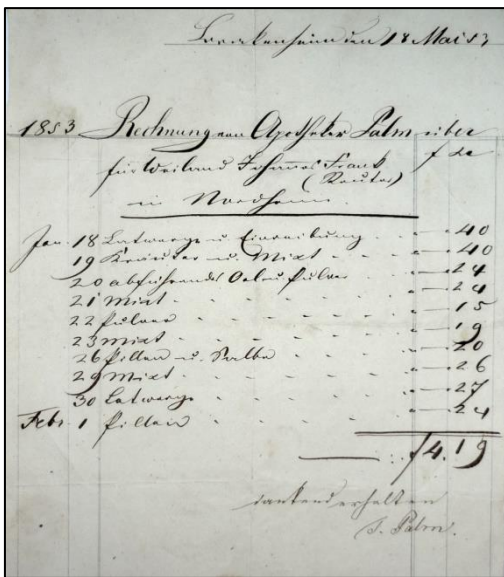 Brackenheim den 18 Mai 53
1853 Rechnung von Apotheker Palm über
für Weiland Johannes Frank f xr
(Reuter)
in Nordheim.
Jan. 18 Latwerge u. Einreibung - - " 40
19 Kräuter u. Mixt - - " 40
20 abführendes Oel u. Pulver " 24
21 Mixt - - - - " 24
22 Pulver - - - - " 15
23 Mixt - - - - " 19
26 Pillen u. Salbe - - - " 20
29 Mixt - - - - " 26
30 Latwerge - - - - " 27
Febr. 1 Pillen - - - - " 24
f 4. 19
dankend erhalten
J. Palm.